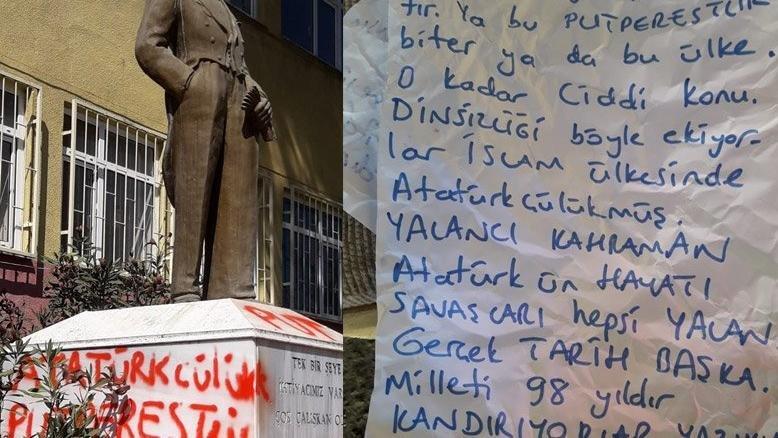 PUT
ATATÜRKCÜLÜK
PUTPERESTLİ
TEK BİR ŞEYE
İHTİYACIMIZ VAR
ÇOK ÇALIŞKAN OL
tir. Ya bu PUTPERESTLİK
biter ya da bu ülke.
O kadar Ciddi konu.
DİNSİZLİĞİ böyle ekiyor-
lar İSLAM ülkesinde
Atatürkçülükmüş.
YALANCI KAHRAMAN
Atatürk ün HAYATI
SAVAŞLARI hepsi YALAN
Gerçek TARİH BAŞKA.
Milleti 98 yıldır
KANDIRIYORLAR